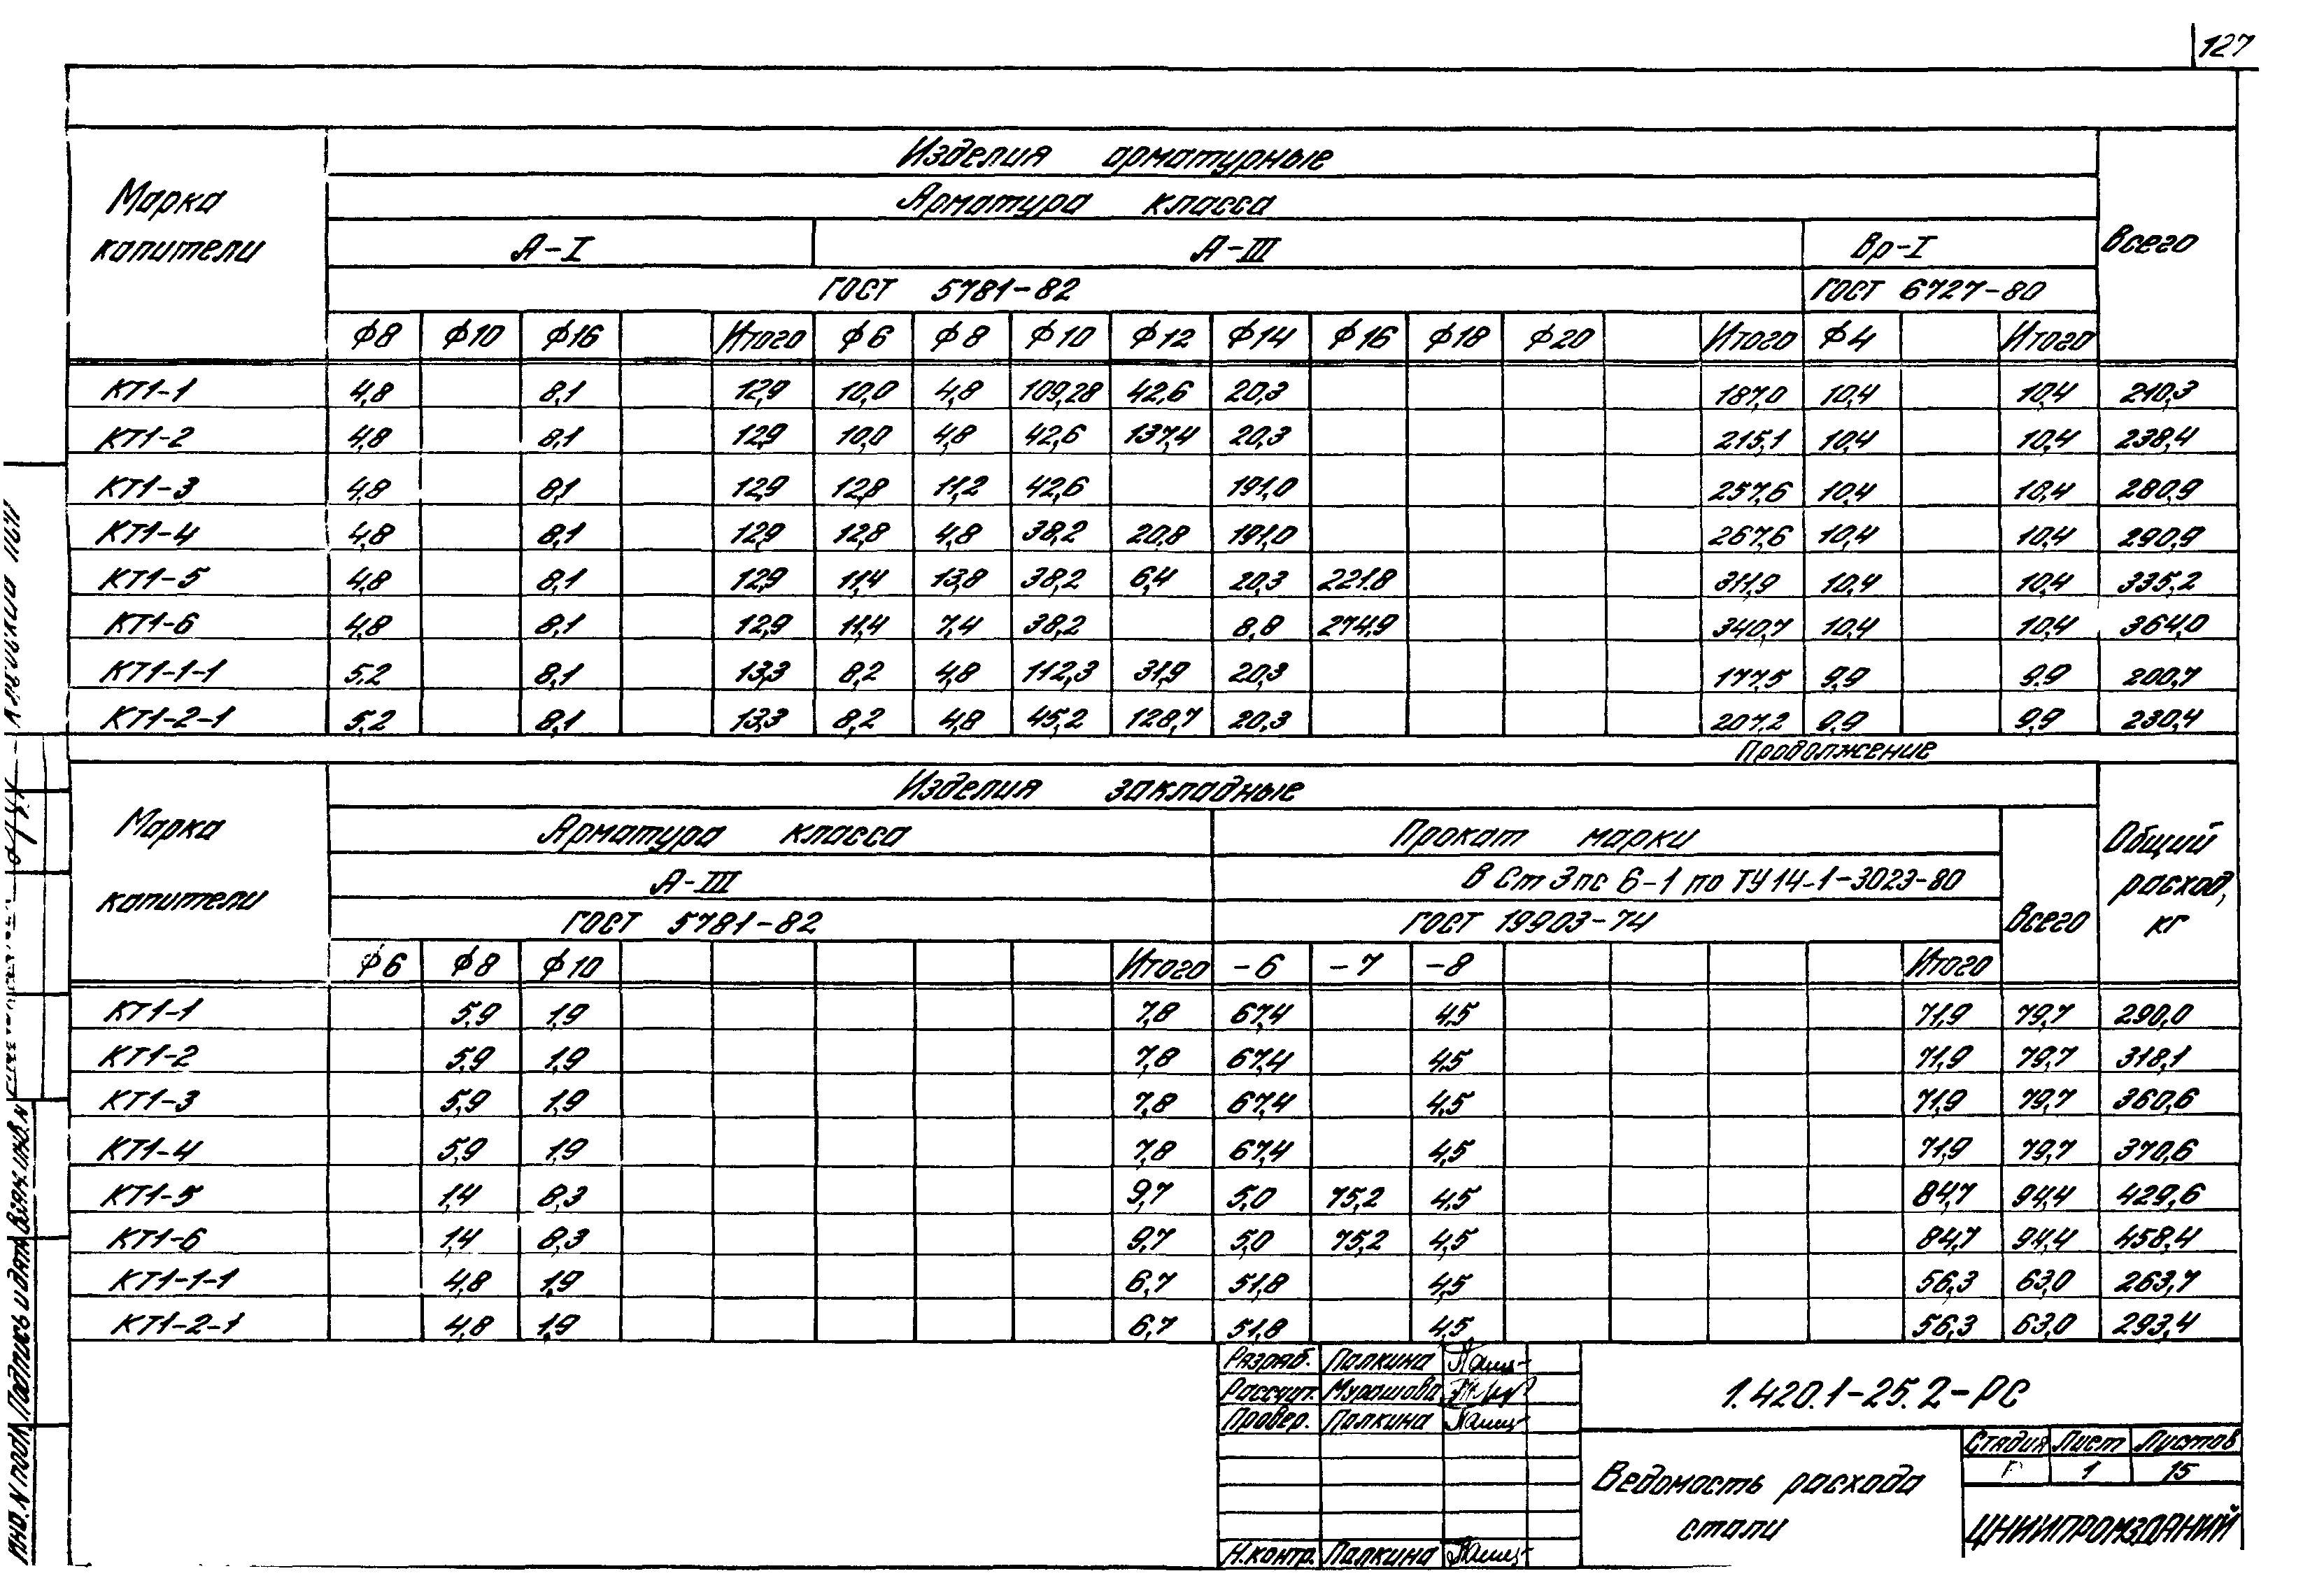 127
Изделия арматурные
Марка капители
Арматура класса
Всего
А-I А-III Вр-I
ГОСТ 5781-82 ГОСТ 6727-80
ф8 ф10 ф16 Итого ф6 ф8 ф10 ф12 ф14 ф16 ф18 ф20 Итого ф4 Итого
КТ1-1 4,8 8,1 12,9 10,0 4,8 109,28 42,6 20,3 187,0 10,4 10,4 210,3
КТ1-2 4,8 8,1 12,9 10,0 4,8 42,6 137,4 20,3 215,1 10,4 10,4 238,4
КТ1-3 4,8 8,1 12,9 12,8 11,2 42,6 191,0 257,6 10,4 10,4 280,9
КТ1-4 4,8 8,1 12,9 12,8 4,8 38,2 20,8 191,0 267,6 10,4 10,4 290,9
КТ1-5 4,8 8,1 12,9 11,4 13,8 38,2 6,4 20,3 221.8 311,9 10,4 10,4 335,2
КТ1-6 4,8 8,1 12,9 11,4 7,4 38,2 8,8 274,9 340,7 10,4 10,4 364,0
КТ1-1-1 5,2 8,1 13,3 8,2 4,8 112,3 31,9 20,3 177,5 9,9 9,9 200,7
КТ1-2-1 5,2 8,1 13,3 8,2 4,8 45,2 128,7 20,3 207,2 9,9 9,9 230,4
Продолжение
Изделия закладные
Марка капители
Арматура класса Прокат марки
Общий расход, кг
А-III В Ст 3 пс 6-1 по ТУ 14-1-3023-80
ГОСТ 5781-82 ГОСТ 19903-74 Всего
ф6 ф8 ф10 Итого -6 -7 -8 Итого
КТ1-1 5,9 1,9 7,8 67,4 4,5 71,9 79,7 290,0
КТ1-2 5,9 1,9 7,8 67,4 4,5 71,9 79,7 318,1
КТ1-3 5,9 1,9 7,8 67,4 4,5 71,9 79,7 360,6
КТ1-4 5,9 1,9 7,8 67,4 4,5 71,9 79,7 370,6
КТ1-5 1,4 8,3 9,7 5,0 75,2 4,5 84,7 94,4 429,6
КТ1-6 1,4 8,3 9,7 5,0 75,2 4,5 84,7 94,4 458,4
КТ1-1-1 4,8 1,9 6,7 51,8 4,5 56,3 63,0 263,7
КТ1-2-1 4,8 1,9 6,7 51,8 4,5 56,3 63,0 293,4
Разраб. Палкина
Рассчит. Мурашова
Провер. Палкина
Н.контр. Палкина
1.420.1-25.2-РС
Ведомость расхода
стали
Стадия Лист Листов
Р 1 15
ЦНИИПРОМЗДАНИЙ
Инв. N подл. Подпись и дата Взам. инв. N